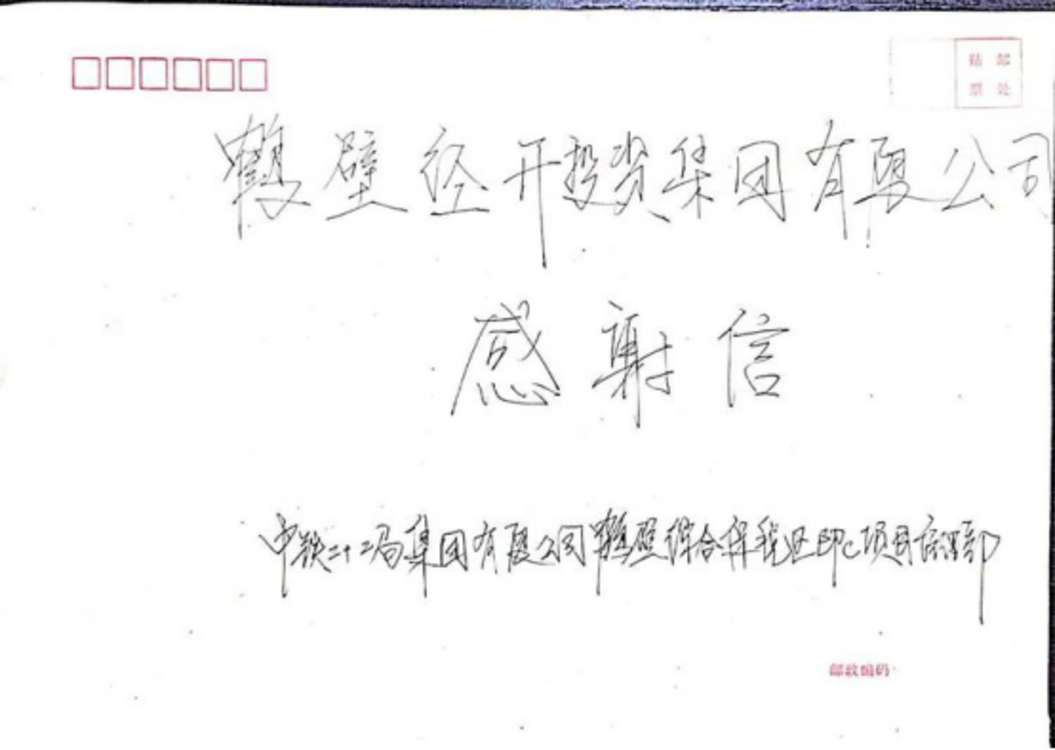 贴 邮
票 处
鹤壁经开投资集团有限公司
感谢信
中铁二十二局集团有限公司鹤壁综合保税区EPC项目经理部
邮政编码